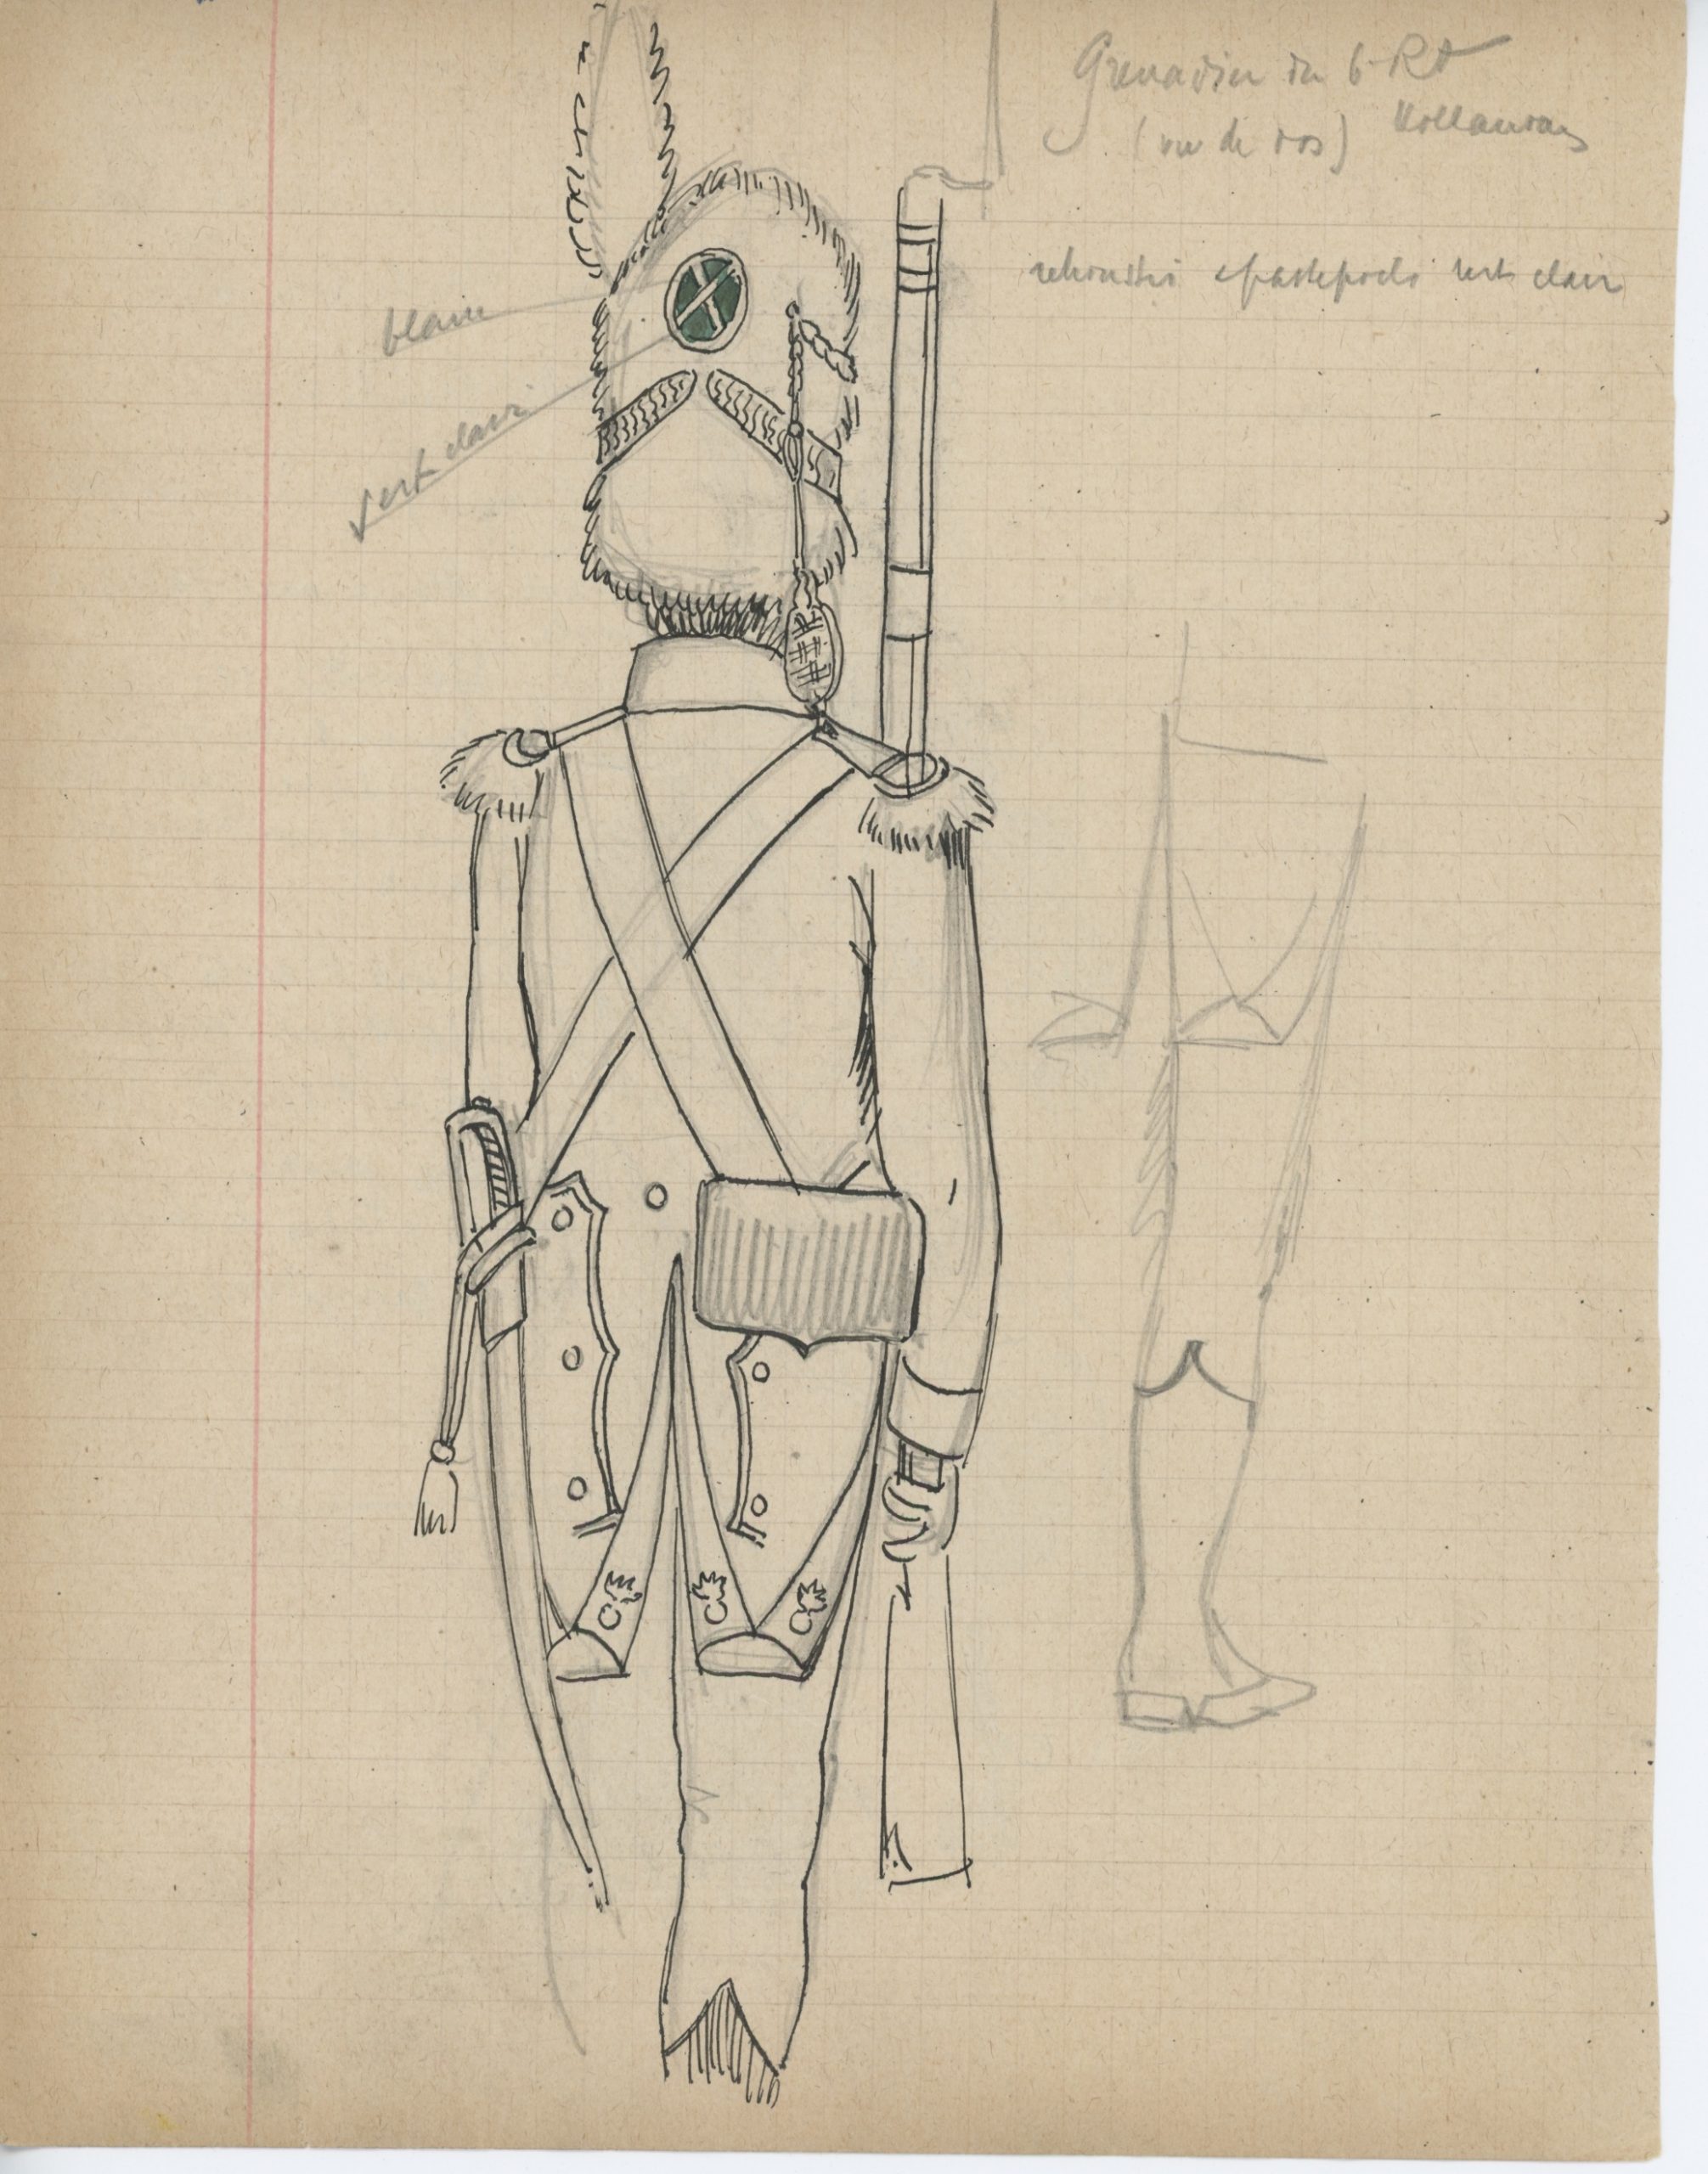 Grenadier du 6 Rt
Hollandais
(vu de dos)
retroussis passepoils vert clair
blanc
vert clair